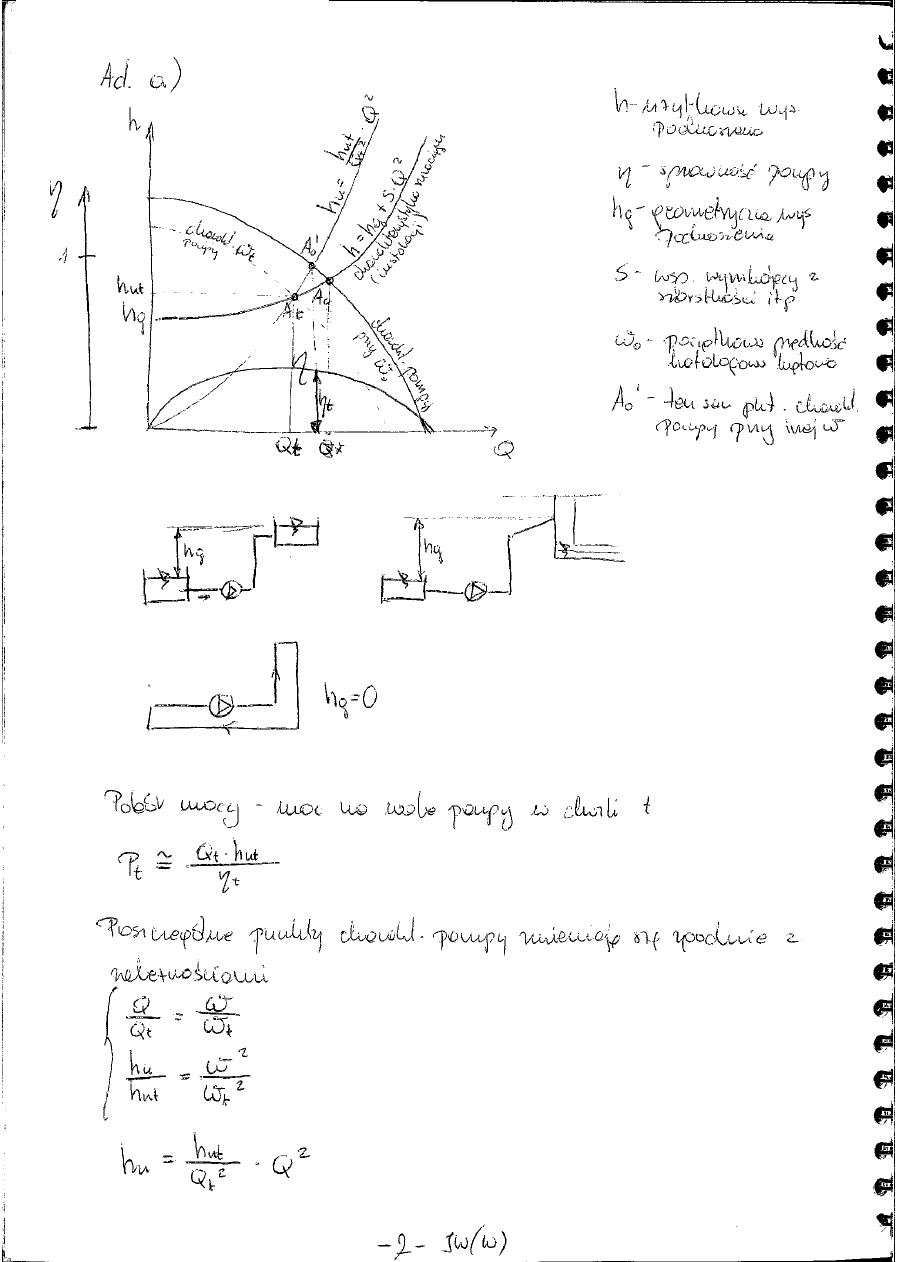 Ad. a)
h
η
1
hut
hg
charakt. pompy ωt
hu = hut/Qt² · Q²
h = hg + S·Q²
charakterystyka
(instalacji)
A₀'
At
A₀
charakt. pompy
przy ω₀
η
ηt
Qt
Q
h - użytkowa wys.
podnoszenia
η - sprawność pompy
hg - geometryczna wys
podnoszenia
S - wsp. wynikający z
szorstkości itp
ω₀ - początkowa prędkość
A₀' - ten sam pkt. charakt.
pompy przy innej ω
hg
hg
hg=0
Pobór mocy - moc na wale pompy w chwili t
Pt ≅ Qt · hut / ηt
Poszczególne punkty charakt. pompy zmieniają się zgodnie z
zależnościami
Q/Qt = ω/ωt
hu/hut = ω²/ωt²
hu = hut/Qt² · Q²
-2- IW(W)